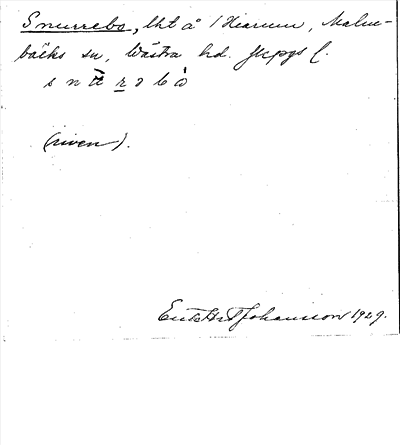 Snurrebo, lht å Hearum, Malm-
bäcks sn, Västra hd. Jkpgs l.
s n u r o b o
(riven).
Enl. H. Johansson 1929.